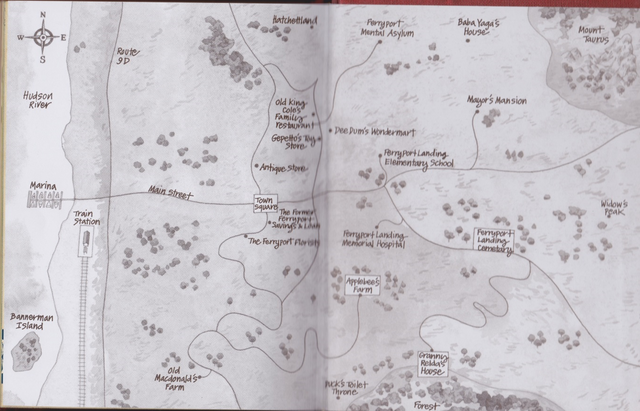 N
W
E
S
Hudson
River
Route
9D
Hatchetland
Ferryport
Mental Asylum
Baba Yaga's
House
Mount
Taurus
Old King
Cole's
Family
Restaurant
Gepetto's Toy
Store
Dee Dum's Wondermart
Mayor's Mansion
Ferryport Landing
Elementary School
Antique Store
Marina
Main Street
Town
Square
The Former
Ferryport
Savings & Loan
The Ferryport Florist
Train
Station
Ferryport Landing
Memorial Hospital
Ferryport
Landing
Cemetery
Widow's
Peak
Applebee's
Farm
Bannerman
Island
Old
Macdonald's
Farm
Granny
Relda's
House
Puck's Toilet
Throne
Forest